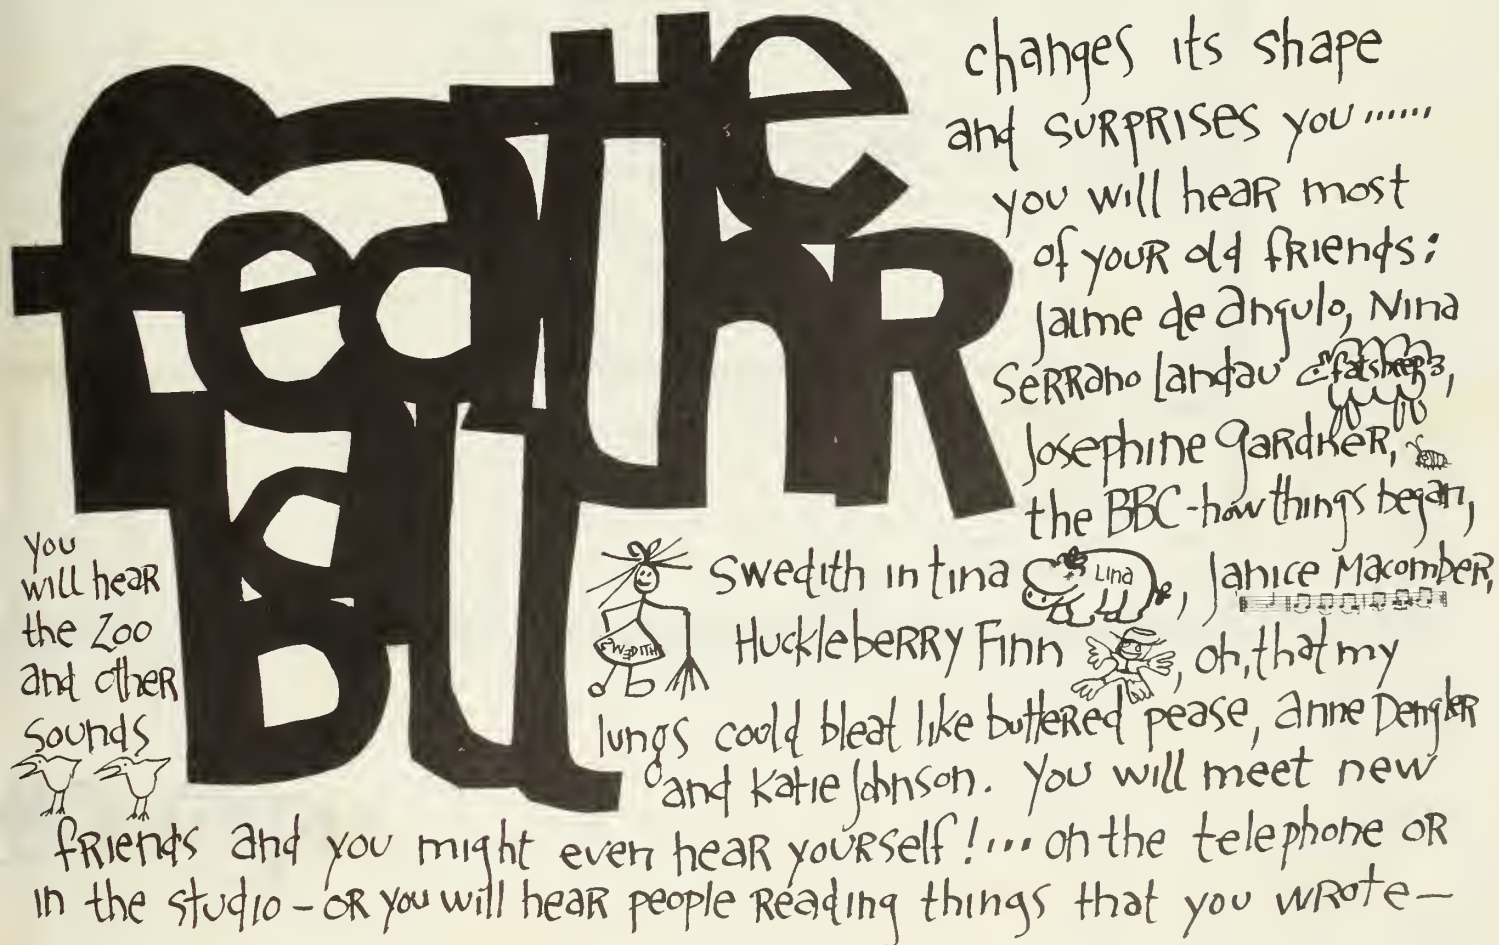 feather
Ball
changes its shape
and SURPRISES you ......
you will hear most
of your old friends:
Jaime de Angulo, Nina
Serrano Landau fatsheep,
Josephine Gardner,
the BBC-how things began,
Swedith in tina LINA, Janice Macomber,
SWEDITH
Huckleberry Finn, oh, that my
lungs could bleat like buttered pease, Anne Dengler
and Katie Johnson. You will meet new
You
will hear
the Zoo
and other
sounds
friends and you might even hear yourself!... on the telephone or
in the studio - or you will hear people reading things that you wrote—